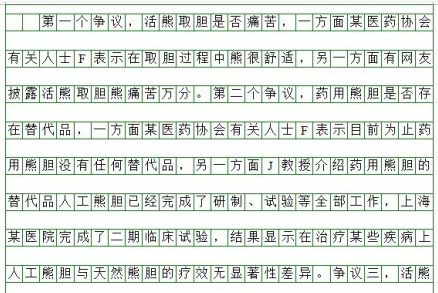 第一个争议，活熊取胆是否痛苦，一方面某医药协会
有关人士F表示在取胆过程中熊很舒适，另一方面有网友
披露活熊取胆熊痛苦万分。第二个争议，药用熊胆是否存
在替代品，一方面某医药协会有关人士F表示目前为止药
用熊胆没有任何替代品，另一方面J教授介绍药用熊胆的
替代品人工熊胆已经完成了研制、试验等全部工作，上海
某医院完成了二期临床试验，结果显示在治疗某些疾病上
人工熊胆与天然熊胆的疗效无显著性差异。争议三，活熊